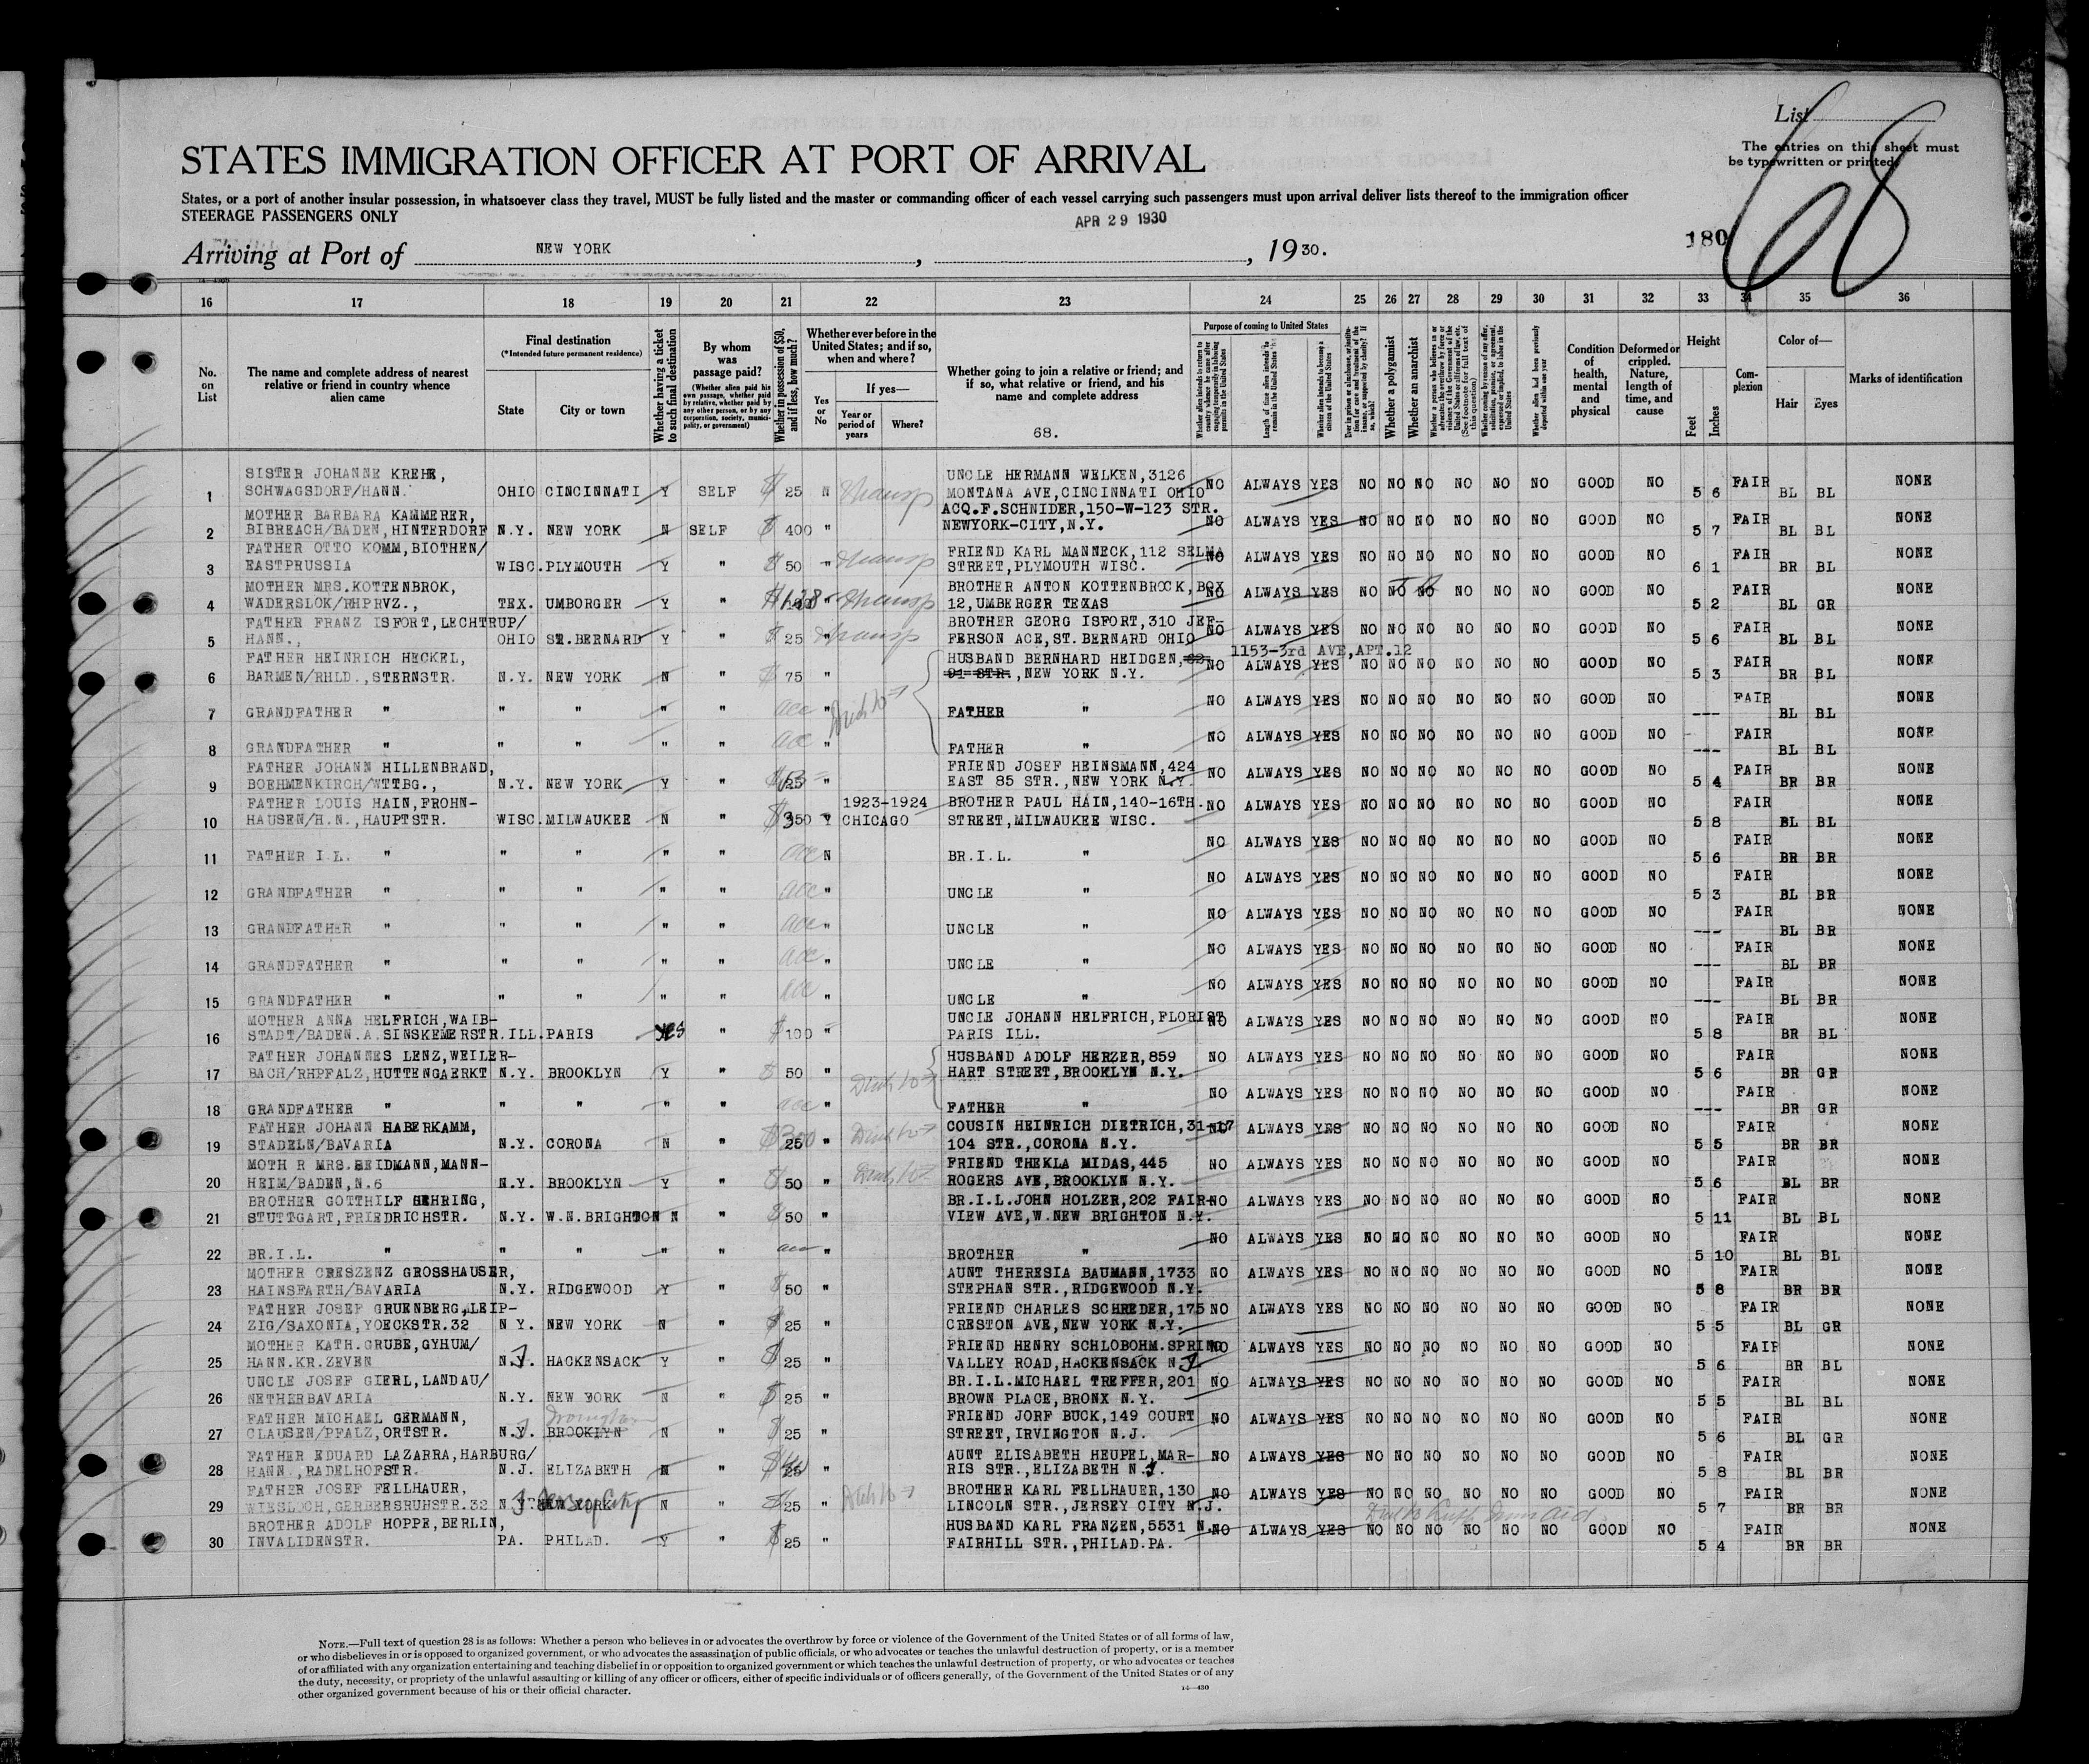 List
The entries on this sheet must
be typewritten or printed
68
STATES IMMIGRATION OFFICER AT PORT OF ARRIVAL
States, or a port of another insular possession, in whatsoever class they travel, MUST be fully listed and the master or commanding officer of each vessel carrying such passengers must upon arrival deliver lists thereof to the immigration officer
STEERAGE PASSENGERS ONLY
APR 29 1930
180
Arriving at Port of NEW YORK, , 1930.
16 17 18 19 20 21 22 23 24 25 26 27 28 29 30 31 32 33 34 35 36
No. on List
The name and complete address of nearest relative or friend in country whence alien came
Final destination
(*Intended future permanent residence)
State
City or town
Whether having a ticket to such final destination
By whom was passage paid?
(Whether alien paid his own passage, whether paid by relative, whether paid by any other person, or by any corporation, society, municipality, or government)
Whether in possession of $50, and if less, how much?
Whether ever before in the United States; and if so, when and where?
Yes or No
If yes—
Year or period of years
Where?
Whether going to join a relative or friend; and if so, what relative or friend, and his name and complete address
68.
Purpose of coming to United States
Whether alien intends to return to country whence he came after engaging temporarily in laboring pursuits in the United States
Length of time alien intends to remain in the United States
Whether alien intends to become a citizen of the United States
Whether a polygamist
Whether an anarchist
Whether alien had been previously deported within one year
Condition of health, mental and physical
Deformed or crippled. Nature, length of time, and cause
Height
Feet
Inches
Complexion
Color of—
Hair
Eyes
Marks of identification
SISTER JOHANNE KREHE, UNCLE HERMANN WELKEN,3126
1 SCHWAGSDORF/HANN. OHIO CINCINNATI Y SELF $ 25 N Transp MONTANA AVE,CINCINNATI OHIO NO ALWAYS YES NO NO NO NO NO NO GOOD NO 5 6 FAIR BL BL NONE
MOTHER BARBARA KAMMERER, ACQ.F.SCHNIDER,150-W-123 STR.
2 BIBREACH/BADEN,HINTERDORF N.Y. NEW YORK N SELF $ 400 " NEWYORK-CITY,N.Y. NO ALWAYS YES NO NO NO NO NO NO GOOD NO 5 7 FAIR BL BL NONE
FATHER OTTO KOMM,BIOTHEN/ FRIEND KARL MANNECK,112 SELMA
3 EASTPRUSSIA WISC. PLYMOUTH Y " $ 50 " Transp STREET,PLYMOUTH WISC. NO ALWAYS YES NO NO NO NO NO NO GOOD NO 6 1 FAIR BR BL NONE
MOTHER MRS.KOTTENBROK, BROTHER ANTON KOTTENBROCK,BOX
4 WADERSLOK/RHPRVZ., TEX. UMBORGER Y " $128 " Transp 12,UMBERGER TEXAS NO ALWAYS YES NO NO NO NO NO NO GOOD NO 5 2 FAIR BL GR NONE
FATHER FRANZ ISFORT,LECHTRUP/ BROTHER GEORG ISFORT,310 JEF-
5 HANN., OHIO ST.BERNARD Y " $ 25 " Transp FERSON ACE,ST.BERNARD OHIO NO ALWAYS YES NO NO NO NO NO NO GOOD NO 5 6 FAIR BL BL NONE
1153-3rd AVE,APT.12
FATHER HEINRICH HECKEL, HUSBAND BERNHARD HEIDGEN,
6 BARMEN/RHLD.,STERNSTR. N.Y. NEW YORK N " $ 75 " 91 STR.,NEW YORK N.Y. NO ALWAYS YES NO NO NO NO NO NO GOOD NO 5 3 FAIR BR BL NONE
7 GRANDFATHER " " " " " acc " FATHER " NO ALWAYS YES NO NO NO NO NO NO GOOD NO --- FAIR BL BL NONE
8 GRANDFATHER " " " " " acc " FATHER " NO ALWAYS YES NO NO NO NO NO NO GOOD NO --- FAIR BL BL NONE
FATHER JOHANN HILLENBRAND, FRIEND JOSEF HEINSMANN,424
9 BOEHMENKIRCH/WTTBG., N.Y. NEW YORK Y " $ 25 " EAST 85 STR.,NEW YORK N.Y. NO ALWAYS YES NO NO NO NO NO NO GOOD NO 5 4 FAIR BR BR NONE
FATHER LOUIS HAIN,FROHN- 1923-1924 BROTHER PAUL HAIN,140-16TH.
10 HAUSEN/H.N.,HAUPTSTR. WISC. MILWAUKEE N " $350 Y CHICAGO STREET,MILWAUKEE WISC. NO ALWAYS YES NO NO NO NO NO NO GOOD NO 5 8 FAIR BL BL NONE
11 FATHER I.L. " " " " " acc N BR.I.L. " NO ALWAYS YES NO NO NO NO NO NO GOOD NO 5 6 FAIR BR BR NONE
12 GRANDFATHER " " " " " acc " UNCLE " NO ALWAYS YES NO NO NO NO NO NO GOOD NO 5 3 FAIR BL BR NONE
13 GRANDFATHER " " " " " acc " UNCLE " NO ALWAYS YES NO NO NO NO NO NO GOOD NO --- FAIR BL BR NONE
14 GRANDFATHER " " " " " acc " UNCLE " NO ALWAYS YES NO NO NO NO NO NO GOOD NO --- FAIR BL BR NONE
15 GRANDFATHER " " " " " acc " UNCLE " NO ALWAYS YES NO NO NO NO NO NO GOOD NO --- FAIR BL BR NONE
MOTHER ANNA HELFRICH,WAIB- UNCLE JOHANN HELFRICH,FLORIST
16 STADT/BADEN.A.SINSKEMERSTR. ILL. PARIS yes " $ 100 " PARIS ILL. NO ALWAYS YES NO NO NO NO NO NO GOOD NO 5 8 FAIR BR BL NONE
FATHER JOHANNES LENZ,WEILER- HUSBAND ADOLF HERZER,859
17 BACH/RHPFALZ,HUTTENGAERKT N.Y. BROOKLYN Y " $ 50 " HART STREET,BROOKLYN N.Y. NO ALWAYS YES NO NO NO NO NO NO GOOD NO 5 6 FAIR BR GR NONE
18 GRANDFATHER " " " " " acc " FATHER " NO ALWAYS YES NO NO NO NO NO NO GOOD NO --- FAIR BR GR NONE
FATHER JOHANN HABERKAMM, COUSIN HEINRICH DIETRICH,31-17
19 STADELN/BAVARIA N.Y. CORONA N " 25 " 104 STR.,CORONA N.Y. NO ALWAYS YES NO NO NO NO NO NO GOOD NO 5 5 FAIR BR BR NONE
MOTH R MRS.SEIDMANN,MANN- FRIEND THEKLA MIDAS,445
20 HEIM/BADEN,N.6 N.Y. BROOKLYN Y " $ 50 " ROGERS AVE,BROOKLYN N.Y. NO ALWAYS YES NO NO NO NO NO NO GOOD NO 5 6 FAIR BL BR NONE
BROTHER GOTTHILF GEHRING, BR.I.L.JOHN HOLZER,202 FAIR-
21 STUTTGART,FRIEDRICHSTR. N.Y. W.N.BRIGHTON N " $ 50 " VIEW AVE,W.NEW BRIGHTON N.Y. NO ALWAYS YES NO NO NO NO NO NO GOOD NO 5 11 FAIR BL BL NONE
22 BR.I.L. " " " " " acc " BROTHER " NO ALWAYS YES NO NO NO NO NO NO GOOD NO 5 10 FAIR BL BL NONE
MOTHER CRESZENZ GROSSHAUSER, AUNT THERESIA BAUMANN,1733
23 HAINSFARTH/BAVARIA N.Y. RIDGEWOOD Y " $ 50 " STEPHAN STR.,RIDGEWOOD N.Y. NO ALWAYS YES NO NO NO NO NO NO GOOD NO 5 8 FAIR BR BR NONE
FATHER JOSEF GRUENBERG,LEIP- FRIEND CHARLES SCHREDER,175
24 ZIG/SAXONIA,YOECKSTR.32 N Y. NEW YORK N " $ 25 " CRESTON AVE,NEW YORK N.Y. NO ALWAYS YES NO NO NO NO NO NO GOOD NO 5 5 FAIR BL GR NONE
MOTHER KATH.GRUBE,GYHUM/ FRIEND HENRY SCHLOBOHM.SPRING
25 HANN.KR.ZEVEN N.J. HACKENSACK Y " $ 25 " VALLEY ROAD,HACKENSACK N J NO ALWAYS YES NO NO NO NO NO NO GOOD NO 5 6 FAIR BR BL NONE
UNCLE JOSEF GIERL,LANDAU/ BR.I.L.MICHAEL TREFFER,201
26 NETHERBAVARIA N.Y. NEW YORK N " $ 25 " BROWN PLACE,BRONX N.Y. NO ALWAYS YES NO NO NO NO NO NO GOOD NO 5 5 FAIR BL BL NONE
FATHER MICHAEL GERMANN, Irvington FRIEND JORF BUCK,149 COURT
27 CLAUSEN/PFALZ,ORTSTR. N.J. BROOKLYN N " $ 25 " STREET,IRVINGTON N.J. NO ALWAYS YES NO NO NO NO NO NO GOOD NO 5 6 FAIR BL GR NONE
FATHER EDUARD LAZARRA,HARBURG/ AUNT ELISABETH HEUPEL,MAR-
28 HANN.,RADELHOFSTR. N.J. ELIZABETH N " 25 " RIS STR.,ELIZABETH N.J. NO ALWAYS YES NO NO NO NO NO NO GOOD NO 5 8 FAIR BL BR NONE
FATHER JOSEF FELLHAUER, BROTHER KARL FELLHAUER,130
29 WIESLOCH,GERBERSRUHSTR.32 N.J. Jersey City N " $ 25 " LINCOLN STR.,JERSEY CITY N.J. NO ALWAYS YES NO NO NO NO NO NO GOOD NO 5 7 FAIR BR BR NONE
BROTHER ADOLF HOPPE,BERLIN, HUSBAND KARL FRANZEN,5531 N.
30 INVALIDENSTR. PA. PHILAD. Y " $ 25 " FAIRHILL STR.,PHILAD.PA. NO ALWAYS YES NO NO NO NO NO NO GOOD NO 5 4 FAIR BR BR NONE
NOTE.—Full text of question 28 is as follows: Whether a person who believes in or advocates the overthrow by force or violence of the Government of the United States or of all forms of law,
or who disbelieves in or is opposed to organized government, or who advocates the assassination of public officials, or who advocates or teaches the unlawful destruction of property, or is a member
of or affiliated with any organization entertaining and teaching disbelief in or opposition to organized government or which teaches the unlawful destruction of property, or who advocates or teaches
the duty, necessity, or propriety of the unlawful assaulting or killing of any officer or officers, either of specific individuals or of officers generally, of the Government of the United States or of any
other organized government because of his or their official character.
14—430